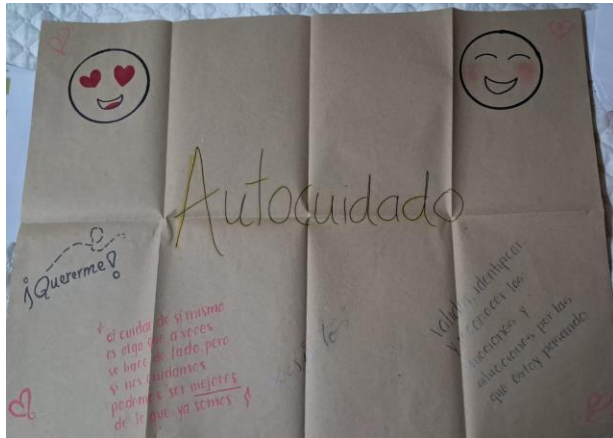 Autocuidado
¡Quererme!
el cuidar de si mismo
es algo que a veces
se hace de lado, pero
si nos cuidamos
podemos ser mejores
de lo que ya somos
Validar, identificar
y reconocer las
emociones y
situaciones por las
que estoy pasando